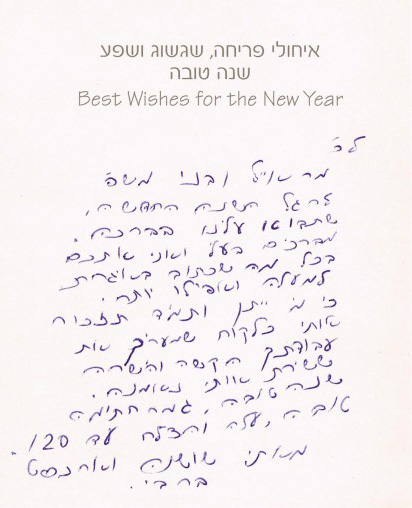 איחולי פריחה, שגשוג ושפע
שנה טובה
Best Wishes for the New Year
לכ'
מר ובני משפ'
לרגל השנה החדשה,
שתבוא עלינו בברכה.
מברכים בעלי ואני אתכם
בכל מה שכתוב באיגרת
למעלה ואפילו יותר.
כי מי ייתן ותמיד תזכור
אותי כלקוח שמעריך את
עבודתך הקשה והישרה
ששירת אותי נאמנה.
שנה טובה, גמר חתימה
טובה, עלה והצלח עד 120.
מאתי שושנה וארנסט